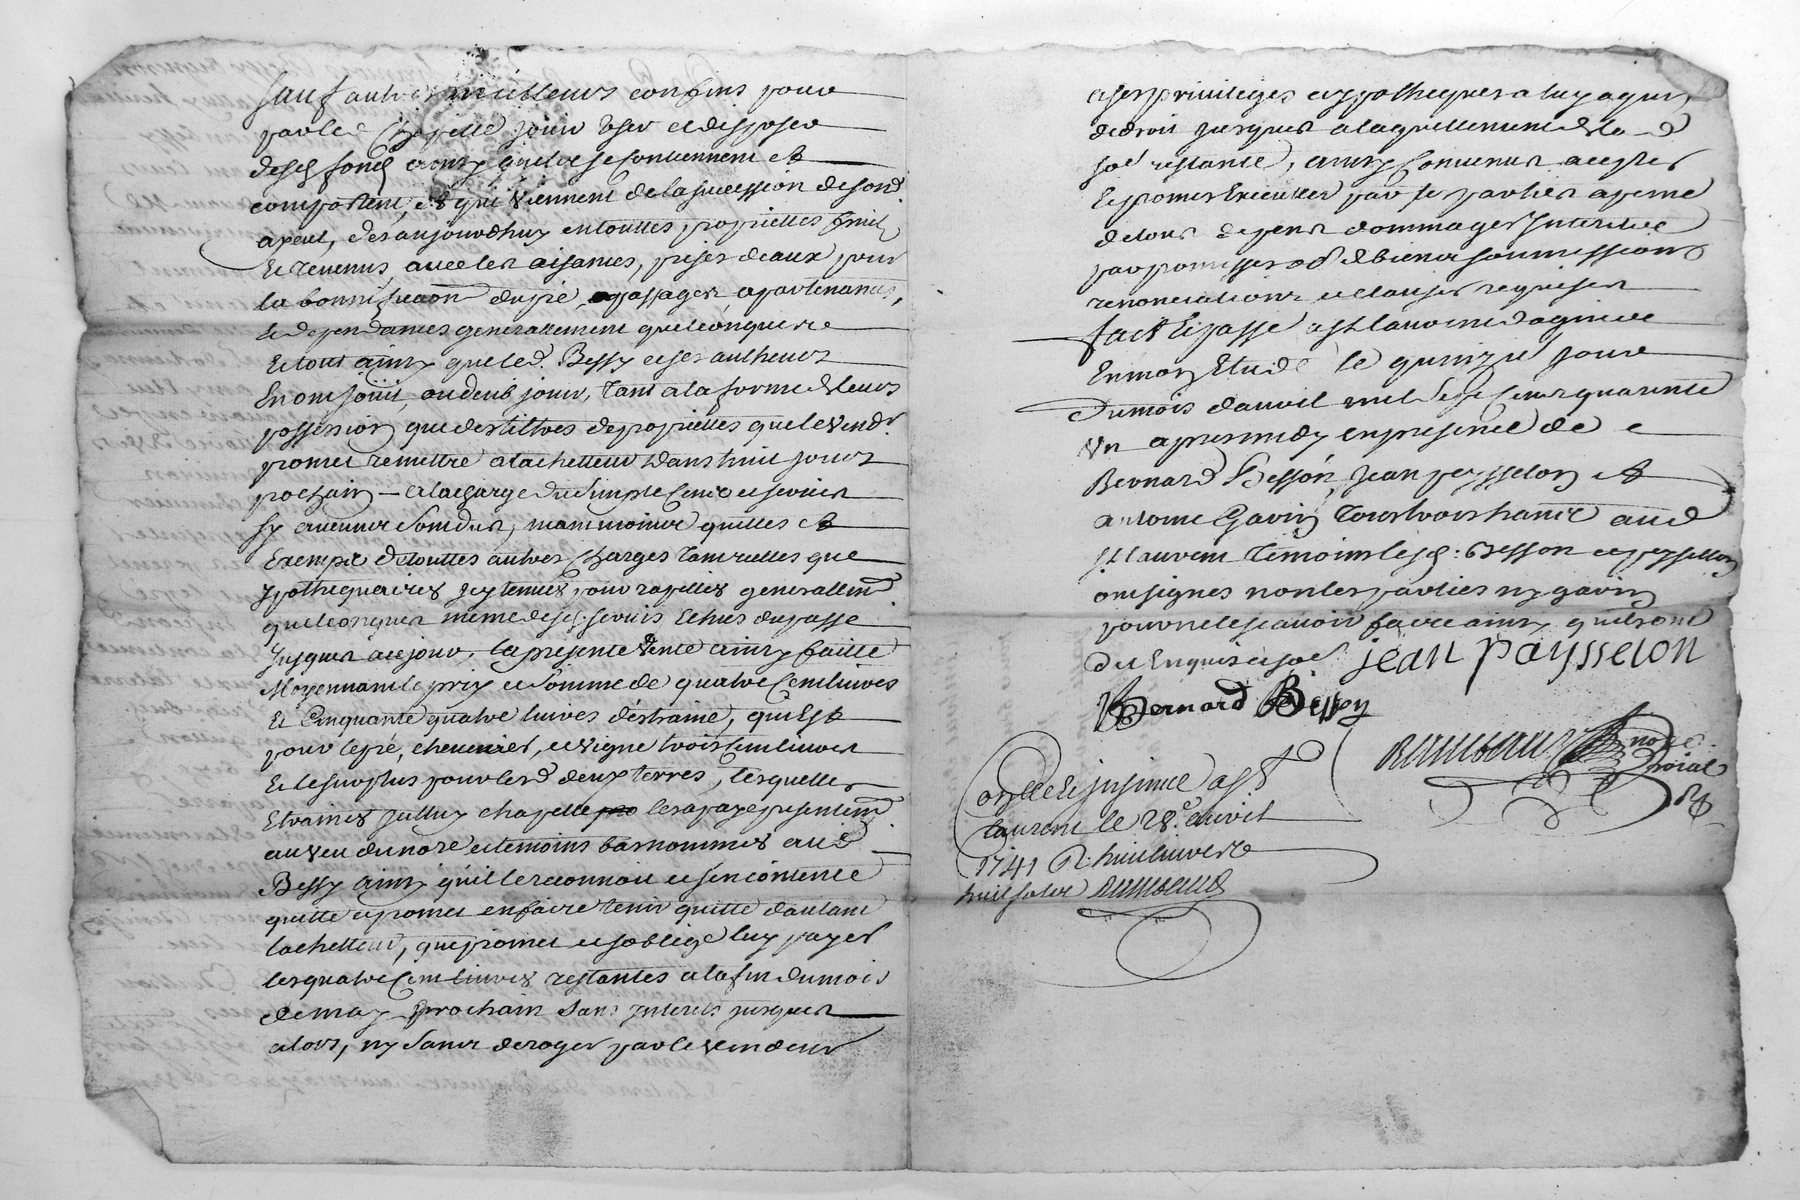 sauf autres meilleurs confins pour
par led Chapelle jouir user et disposer
desd fond ainsy quils se contiennent et
comportent, et qui viennent de la succession de son
ayeul, des aujourdhuy en touttes proprietes fruit
Et revenus avec les aisances, prises deaux pour
la bonnification du pré, passages apartenances,
Et dependances generallement quelconques
Et tout ainsy que led. Bessy et ses autheurs
En ont joüit, ou deub jouir, tant a la forme de leurs
possession que des tiltres de proprietes que le vendr
promet remettre a lachetteur dans huit jours
prochain — a la charge du simple Cens et servis
sy aucuns sont dus, neanmoins quittes et
Exempt de touttes autres Charges tant reelles que
ypothequaires generallemt
quelconques meme desd. servis Echus du passé
Jusques a ce jour, la presente vente ainsy faitte
Moyennant le prix et somme de quatre Cent livres
Et Cinquante quatre livres destraine, qui Est
pour le pré, cheneviet, et vigne trois Cent livres
Et le surplus pour lesd deux terres, lesquelles
Etraines led Chapelle les a payé presentemt
au veu du nore et temoins bas nommés aud
Bessy ainsy quil le reconnoit et sen contente
quitte et promet en faire tenir quitte dautant
lachetteur, qui promet et soblige luy payer
les quatre Cent livres restantes a la fin du mois
de may prochain sans interets jusques
alors, ny sans deroger par le vendeur
a ses privileges et ypotheques a luy aquis
de droit jusques a laquittement de la d
soe restante, ainsy Convenu accepté
Et promis Executter par les parties a peine
de tous depens dommages Interets
par promisses obs de biens soumissions
renonciations et clauses requises
fait Et passé a St Laurent dagny
En mon Etude le quinzie jour
Du mois davril mil sept Cent quarante
un apres midy en presence de
Bernard Besson, Jean peysselon et
antoine Gavin tous trois hants aud
St Laurent temoins lesd. Besson et peysselon
ont signes non les parties ny gavin
pour ne le scavoir faire ainsy quils ont
dit Enquis et soe Jean Paysselon
Bernard Besson
nore
roial
Conllé Et insinué a St
Laurent le 28e avril
1741 R. huit livres
huit sols